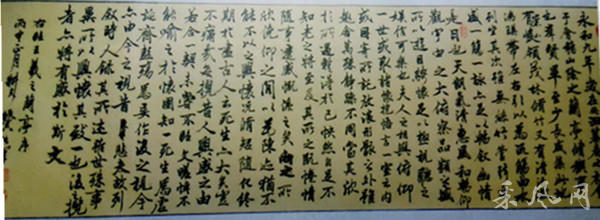 永和九年歲在癸丑暮春之初會
于會稽山陰之蘭亭脩禊事
也羣賢畢至少長咸集此地
有崇山峻領茂林脩竹又有清流激
湍暎帶左右引以為流觴曲水
列坐其次雖無絲竹管弦之
盛一觴一詠亦足以暢敘幽情
是日也天朗氣清惠風和暢仰
觀宇宙之大俯察品類之盛
所以遊目騁懷足以極視聽之
娛信可樂也夫人之相與俯仰
一世或取諸懷抱悟言一室之內
或因寄所託放浪形骸之外雖
趣舍萬殊靜躁不同當其欣
於所遇蹔得於己怏然自足不
知老之將至及其所之既惓情
隨事遷感慨係之矣向之所
欣俛仰之間以為陳迹猶不
能不以之興懷況脩短隨化終
期於盡古人云死生亦大矣豈
不痛哉每攬昔人興感之由
若合一契未嘗不臨文嗟悼不
能喻之於懷固知一死生為虛
誕齊彭殤為妄作後之視今
亦由今之視昔悲夫故列
敘時人錄其所述雖世殊事
異所以興懷其致一也後攬
者亦將有感於斯文
右臨王羲之蘭亭序
丙申正月
采风网